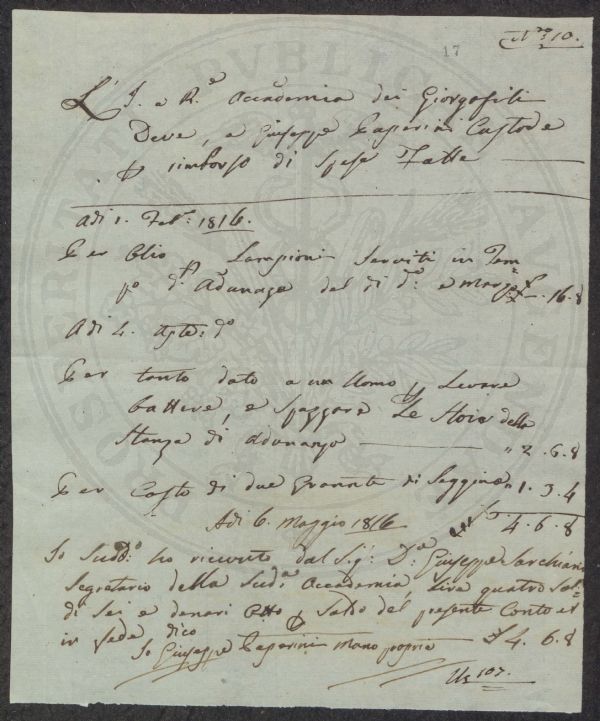 N.ro 10.
17
L'I. e R.e Accademia dei Giorgofili
Deve, a Giuseppe Gaperini Custode
p rimborso di Spese Fatte
Adi 1. Feb.o 1816.
Per Olio p Lampioni Serviti in Tem=
po d.' Adunanze del di d.o e Marzo £ -. 16. 8
Adi 4. d.o
Per tanto dato a un Uomo p Levare
battere, e spazzare Le Stoie della
Stanza di Adunanza " 2. 6. 8
Per Costo di due Granate di Saggina " 1. 3. 4
£ 4. 6. 8
Adi 6. Maggio 1816
Io Sudd.o ho ricevuto dal Sig.r D.re Giuseppe Sarchiani
Segretario della Sud.a Accademia, Lire quattro Sol=
di Sei e denari Otto p Saldo del presente Conto et
in fede dico £ 4. 6. 8
Io Giuseppe Gaperini mano propria
107.
PROSPERITATI PUBLICAE AUGENDAE